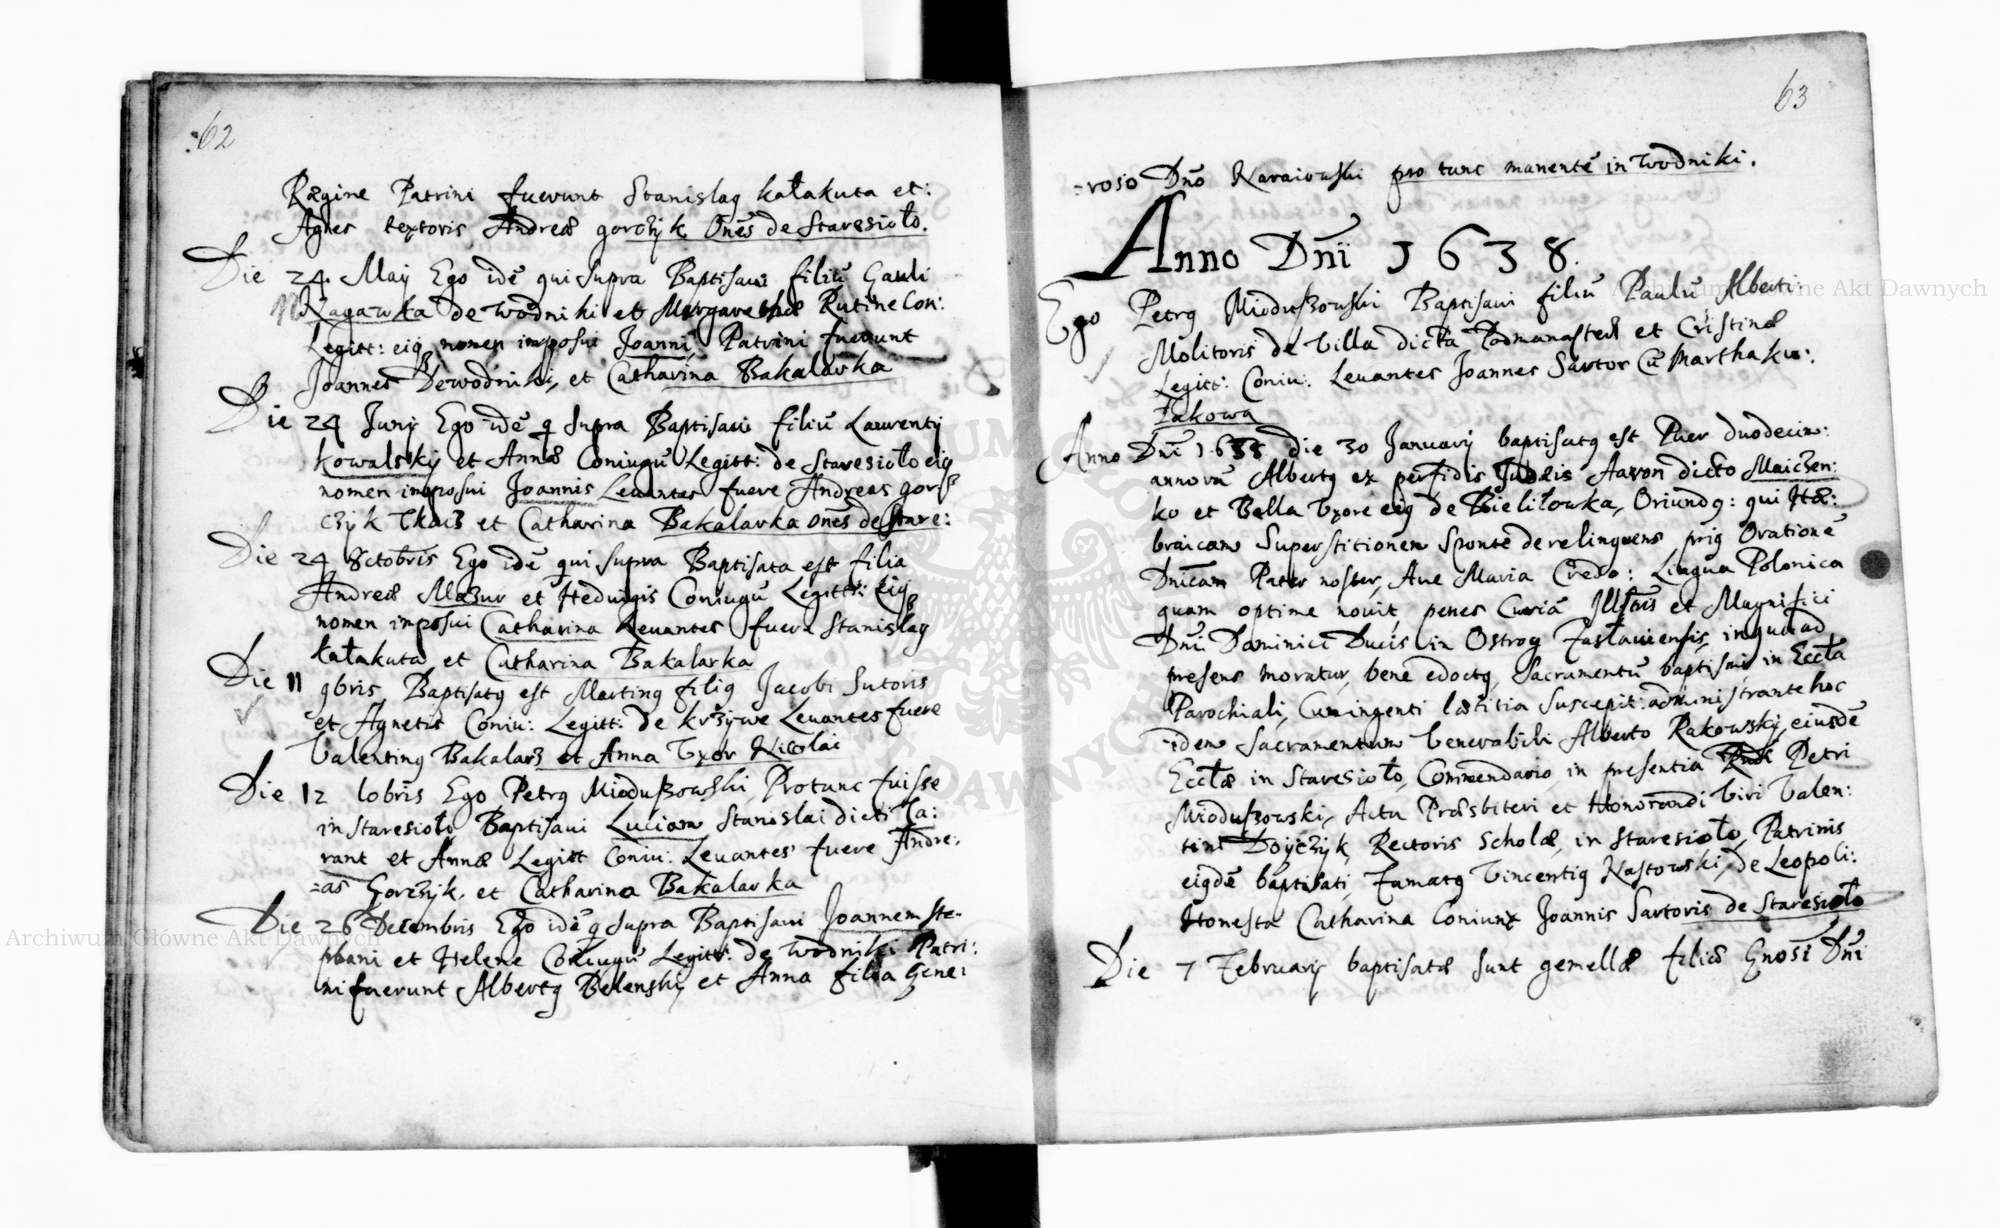 62
Rægine Patrini fuerunt Stanislaq kałakuta et:
Agnes textoris Andreæ gorczÿk Oñes de Staresioło.
Die 24 Maÿ Ego idē qui supra Baptisaui filiū Gauli
Kagawka de Wodniki et Margarethæ Rutine Con:
Legitt: eiq nomen imposui Joanni, Patrini fuerunt
Joannes Dewodniki, et Catharina Bakalarka
Die 24 Junÿ Ego idē q supra Baptisaui filiū Laurentÿ
kowalskÿ et Annæ Coniugū Legitt: de Staresioło eiq
nomen imposui Joannis Leuantes fuere Andreas gor
czÿk Tkacz et Catharina Bakalarka oñes de Stare:
Die 24 8ctobris Ego idē qui supra Baptisata est filia
Andreæ Mazur et Hedwigis Coniugū Legitt: eiq
nomen imposui Catharina Leuantes fuere Stanislaq
kałakuta et Catharina Bakalarka
Die 11 9bris Baptisatq est Martinq filiq Jacobi Sutoris
et Agnetis Coniu: Legitt: de krzÿwe Leuantes fuere
Valentinq Bakalarz et Anna Vxor Nicolai
Die 12 10bris Ego Petrq Miodußowski, Protunc fuisse
in Staresioło Baptisaui Luciam Stanislai dicti Ta:
rant et Annæ Legitt Coniu: Leuantes fuere Andre:
-as Gorczik, et Catharina Bakalarka
Die 26 Decembris Ego idē q supra Baptisaui Joannem Ste-
phani et Helene Coniugū Legitt: de Wodniki Patri:
ni fuerunt Albertq Belenski, et Anna filia Gene:
63
-roso Dño Naraiowski pro tunc manentē in Wodniki.
Anno Dñi 1638.
Ego Petrq Miodußowski Baptisaui filiū Paulū Alberti
Molitoris de Villa dicta Podmanasteæ et Cristinæ
Legitt: Coniu: Leuantes Joannes Sartor Cū Martha ku:
Takowa
Anno Dñi 1638 die 30 Januarÿ baptisatq est Puer duodecim:
annorū Albertq ex perfidis Judæis Aaron dicto Maiczen:
ko et Bella Vxore eiq de Bieliłowka, Oriundq: qui Hæ:
braicam Superstitionem sponte derelinquens priq Orationē
Dñicam Pater noster, Aue Maria Credo: Lingua Polonica
quam optime nouit, penes Curiā Illtris et Magnifici
Dñi Dominici Ducis in Ostrog Zasłauiensis, in qua ad
presens moratur, bene edoctq, Sacramentū baptismi in Eccła
Parochiali, Cum ingenti lætitia Suscepit: administrante hoc
-idem Sacramentum Venerabili Alberto Rakowskÿ, eiusdē
Eccłæ in Staresioło, Commendario, in presentia Petri
Miodußowski, Actu Præsbiteri et Honorandi Viri Valen:
tini Doÿczÿk, Rectoris Scholæ, in Staresioło, Patrinis
eiqdē baptisati, Famatq Vincentiq Nastowski, de Leopoli:
Honesta Catharina Coniunx Joannis Sartoris de Staresioło
Die 7 Februarÿ baptisatæ sunt gemellæ filiæ Gnosi Dñi
Archiwum Główne Akt Dawnych
Archiwum Główne Akt Dawnych